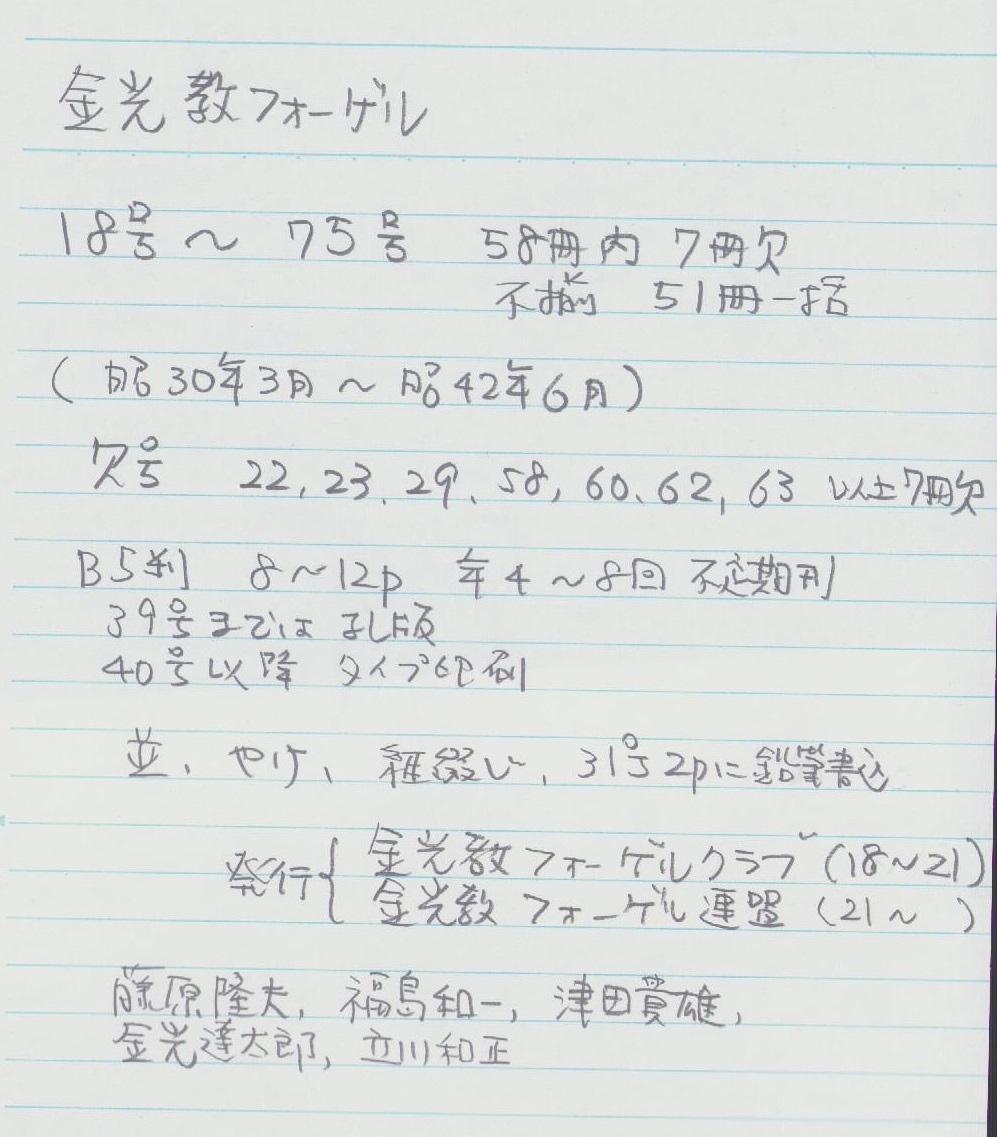 金光教フォーゲル
18号～75号 58冊内 7冊欠
不揃 51冊一括
(昭30年3月～昭42年6月)
欠号 22, 23, 29, 58, 60, 62, 63 以上7冊欠
B5判 8～12p 年4～8回 不定期刊
39号までは孔版
40号以降 タイプ印刷
並、やけ、紐綴じ、31号2pに鉛筆書込
発行{金光教フォーゲルクラブ(18～21)
金光教フォーゲル連盟(21～ )
藤原隆夫, 福島和一, 津田貴雄,
金光達太郎, 立川和正